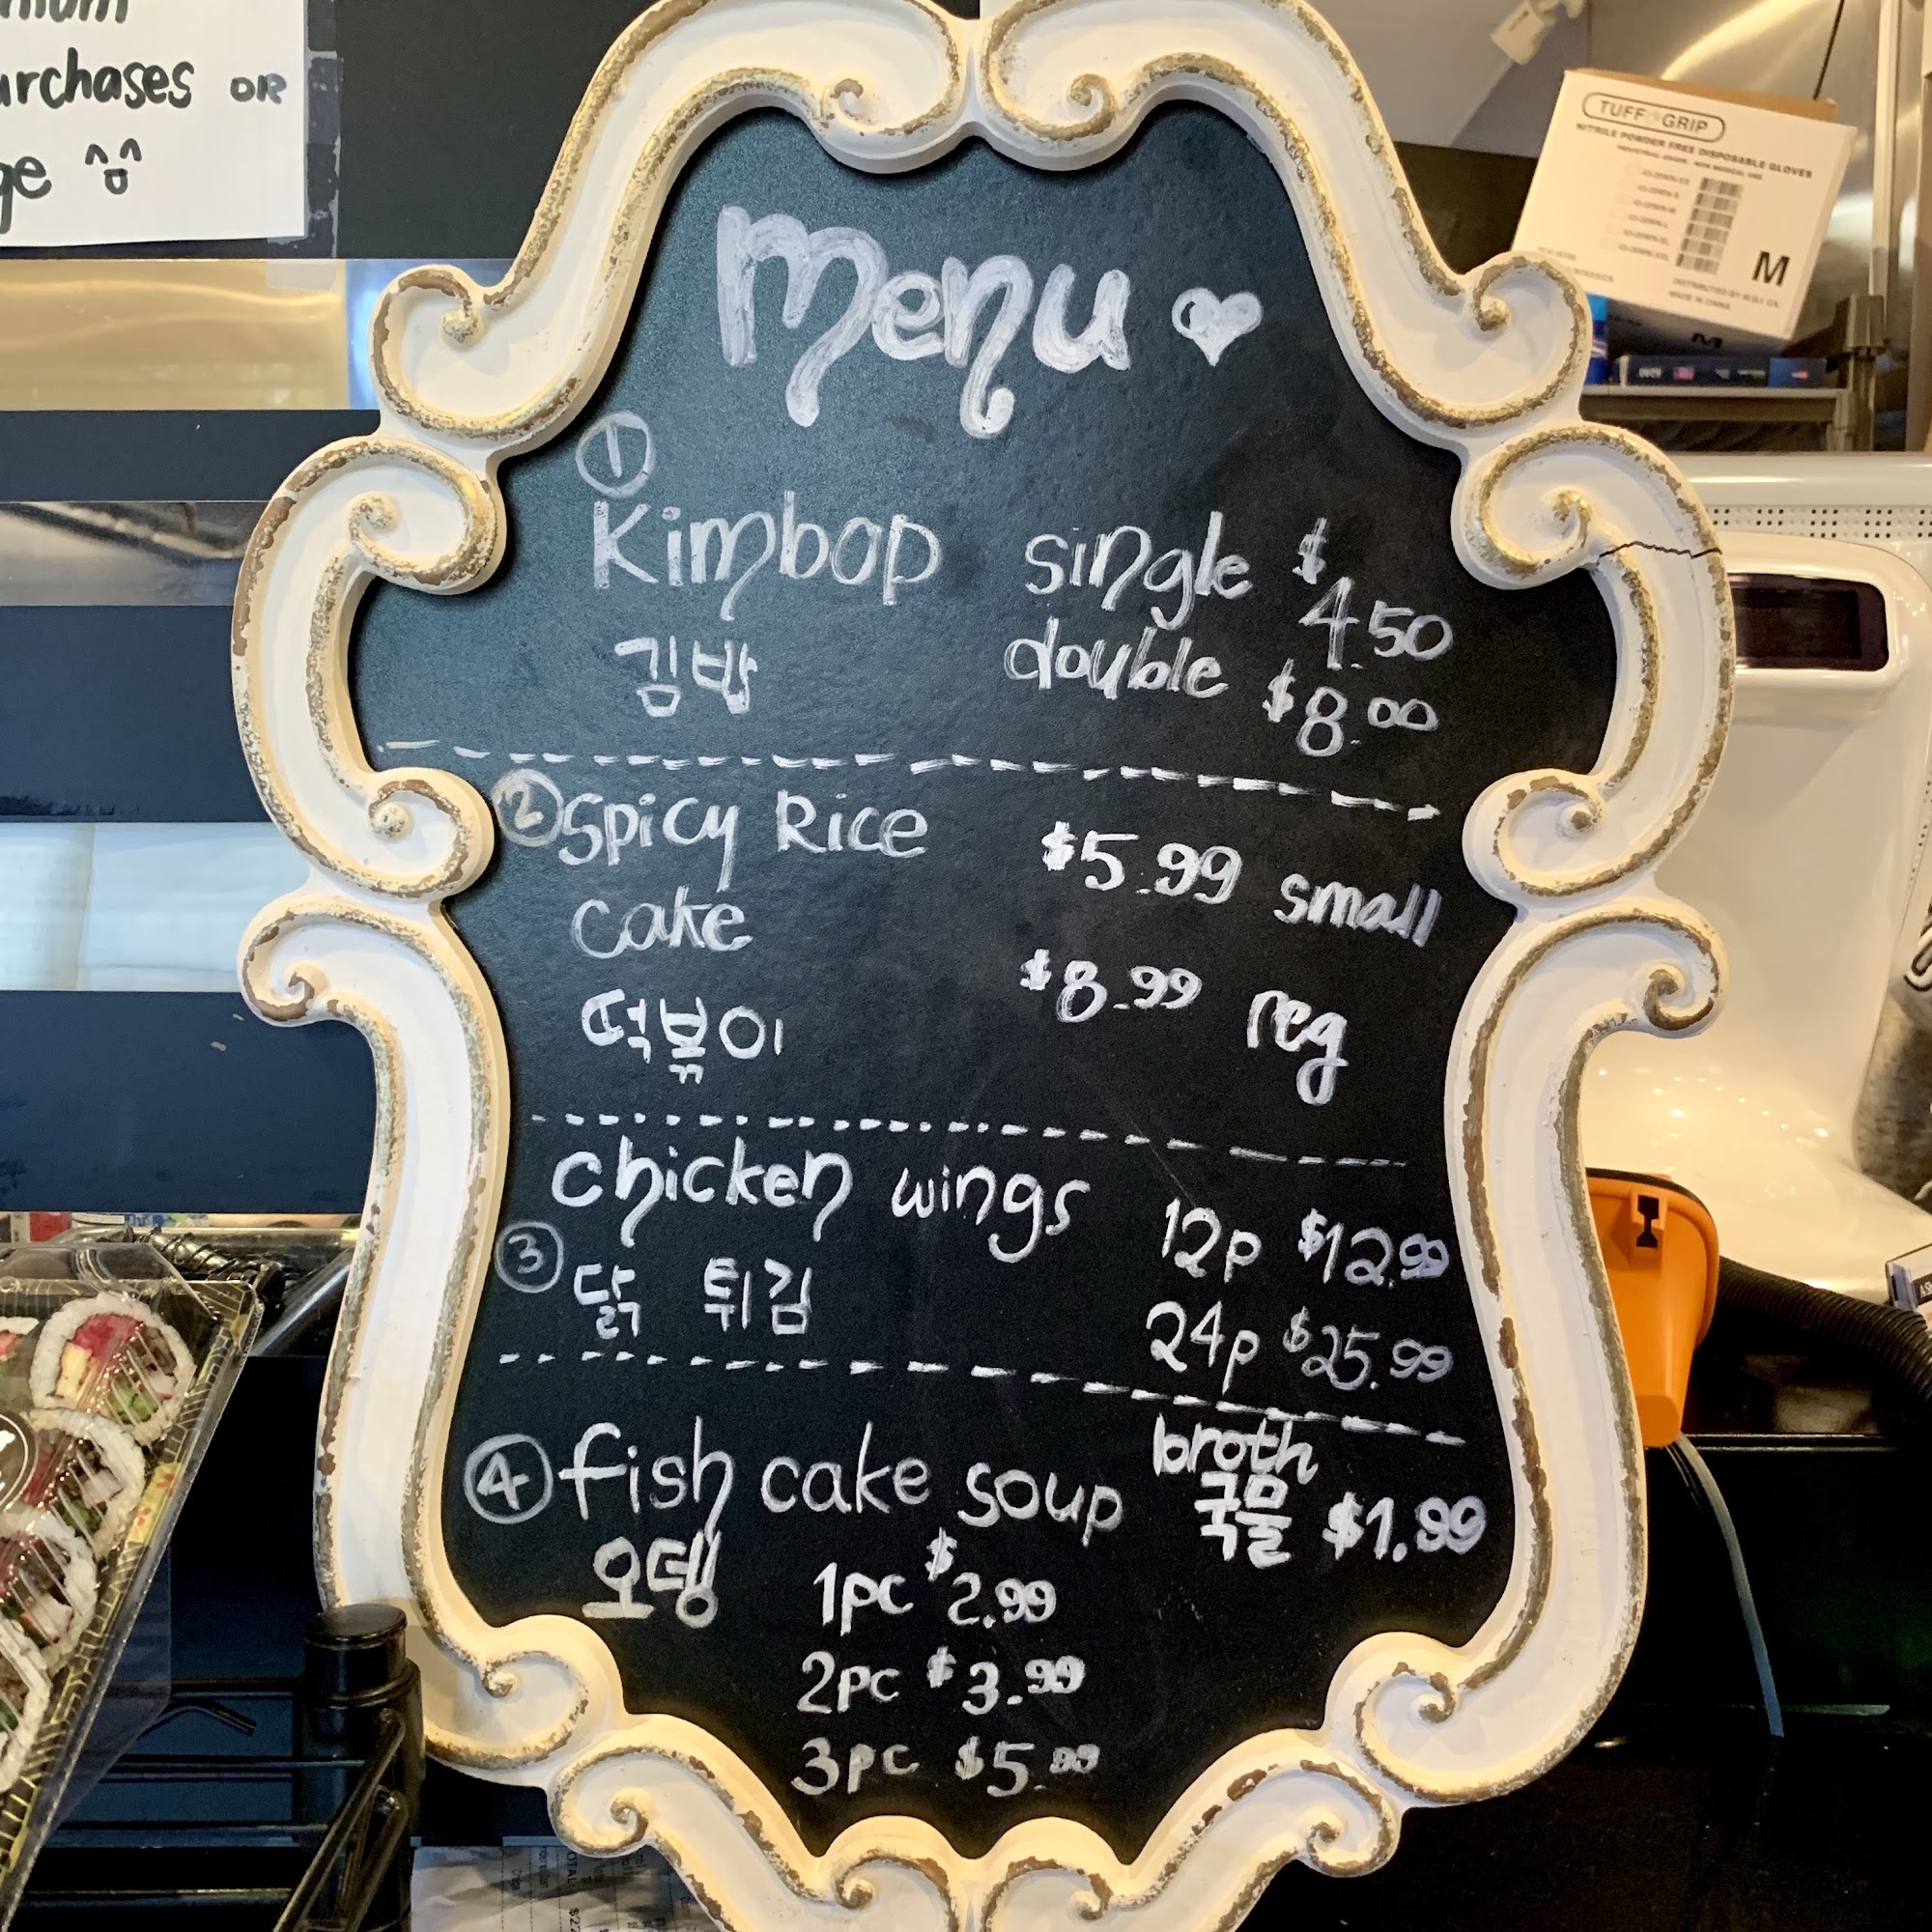 urchases OR
ge
Menu
①
Kimbap single $4.50
김밥 double $8.00
② Spicy Rice $5.99 small
cake
떡볶이 $8.99 reg
chicken wings 12p $12.99
③ 닭 튀김
24p $25.99
④ fish cake soup broth
국물 $1.99
오뎅 1pc $2.99
2pc $3.99
3pc $5.99
TUFF GRIP
NITRILE POWDER FREE DISPOSABLE GLOVES
INDUSTRIAL GRADE - NON MEDICAL USE
M
MADE IN CHINA